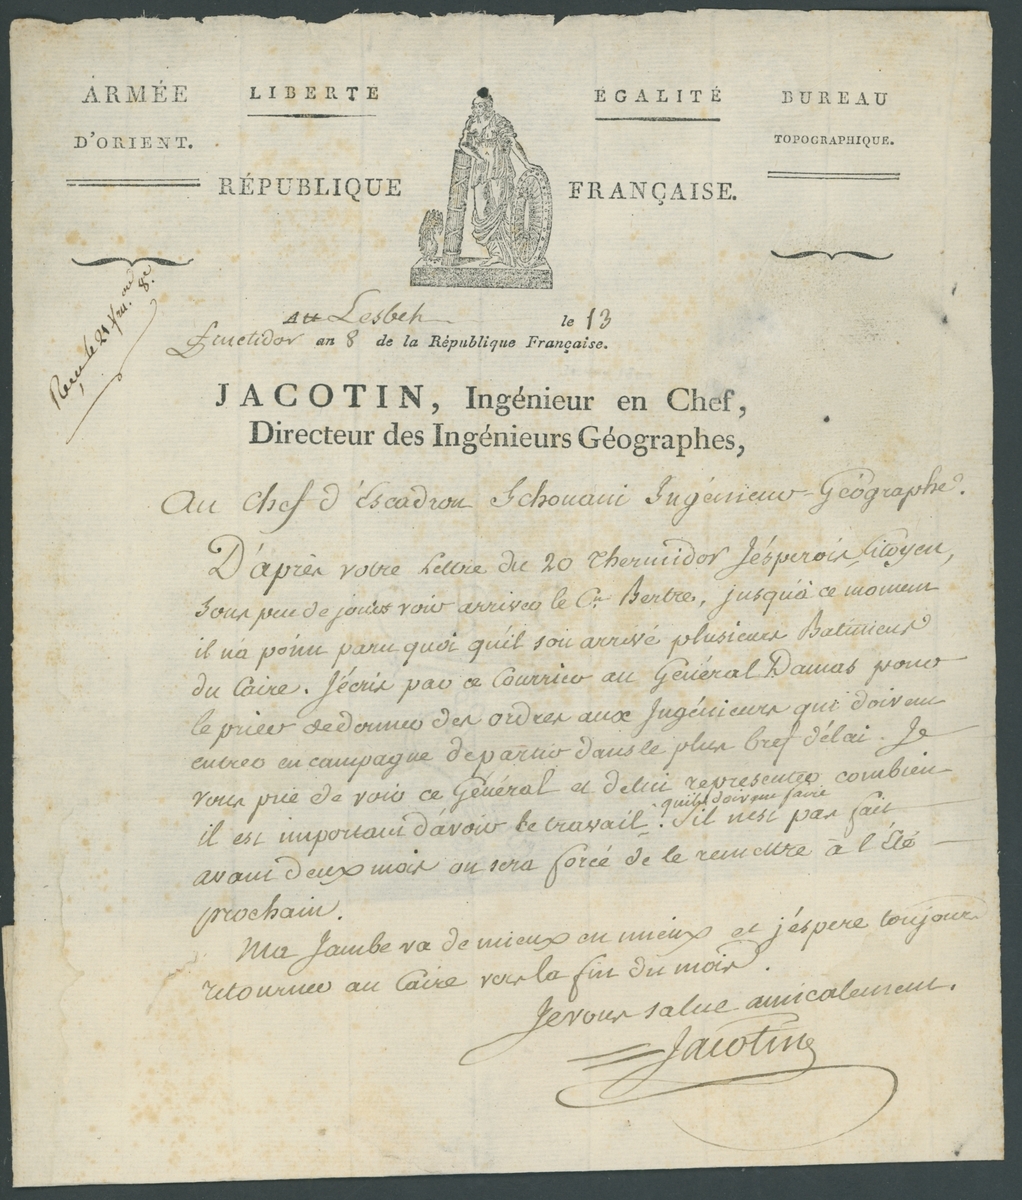 ARMÉE
D'ORIENT.
LIBERTE
ÉGALITÉ
BUREAU
TOPOGRAPHIQUE.
RÉPUBLIQUE FRANÇAISE.
Reçu le 21 fru. an 8.e
Au Lesbeh le 13
fructidor an 8 de la République Française.
JACOTIN, Ingénieur en Chef,
Directeur des Ingénieurs Géographes,
Au Chef d'Escadron Schouani Ingénieur-Géographe.
D'après votre Lettre du 20 Thermidor J'ésperois, Citoyen,
sous peu de jours voir arriver le Cn. Bertre, jusqu'à ce moment
il n'a point paru quoi qu'il soit arrivé plusieurs Batimens
du Caire. J'écris par ce Courrier au Général Damas pour
le prier de donner des ordres aux Ingénieurs qui doivent
entrer en campagne de partir dans le plus bref délai. Je
vous prie de voir ce Général et de lui representer combien
il est important d'avoir le travail qu'ils doivent faire. S'il n'est pas fait
avant deux mois on sera forcé de le remettre à l'Été
prochain.
Ma Jambe va de mieux en mieux et j'éspere toujours
retourner au Caire vers la fin du mois.
Je vous salue amicalement.
Jacotin